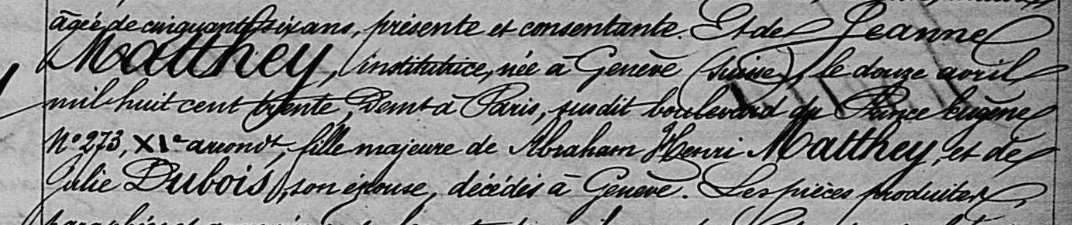 âgée de cinquante six ans, présente et consentante. Et de Jeanne
Matthey, institutrice, née à Genève (Suisse), le douze avril
mil huit cent trente, Demt à Paris, susdit boulevard du Prince Eugène
No 273, XIe arrondt, fille majeure de Abraham Henri Matthey, et de
Julie Dubois, son épouse, décédés à Genève. Les pièces produites,